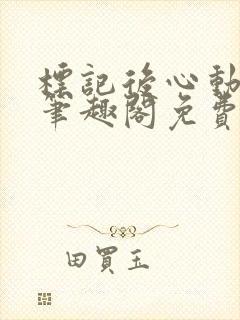 標記後心動
筆趣閣免費
田買玉